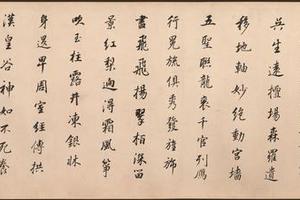 吳生遠擅場森羅
移地軸妙絕動宮墻
五聖聯龍袞千官列鴈
行冕旒俱秀發旌旆
飛揚翠栢深留
景紅梨迥得霜風箏
吹玉柱露井凍銀牀
身退卑周室經傳拱
漢皇谷神如不死養